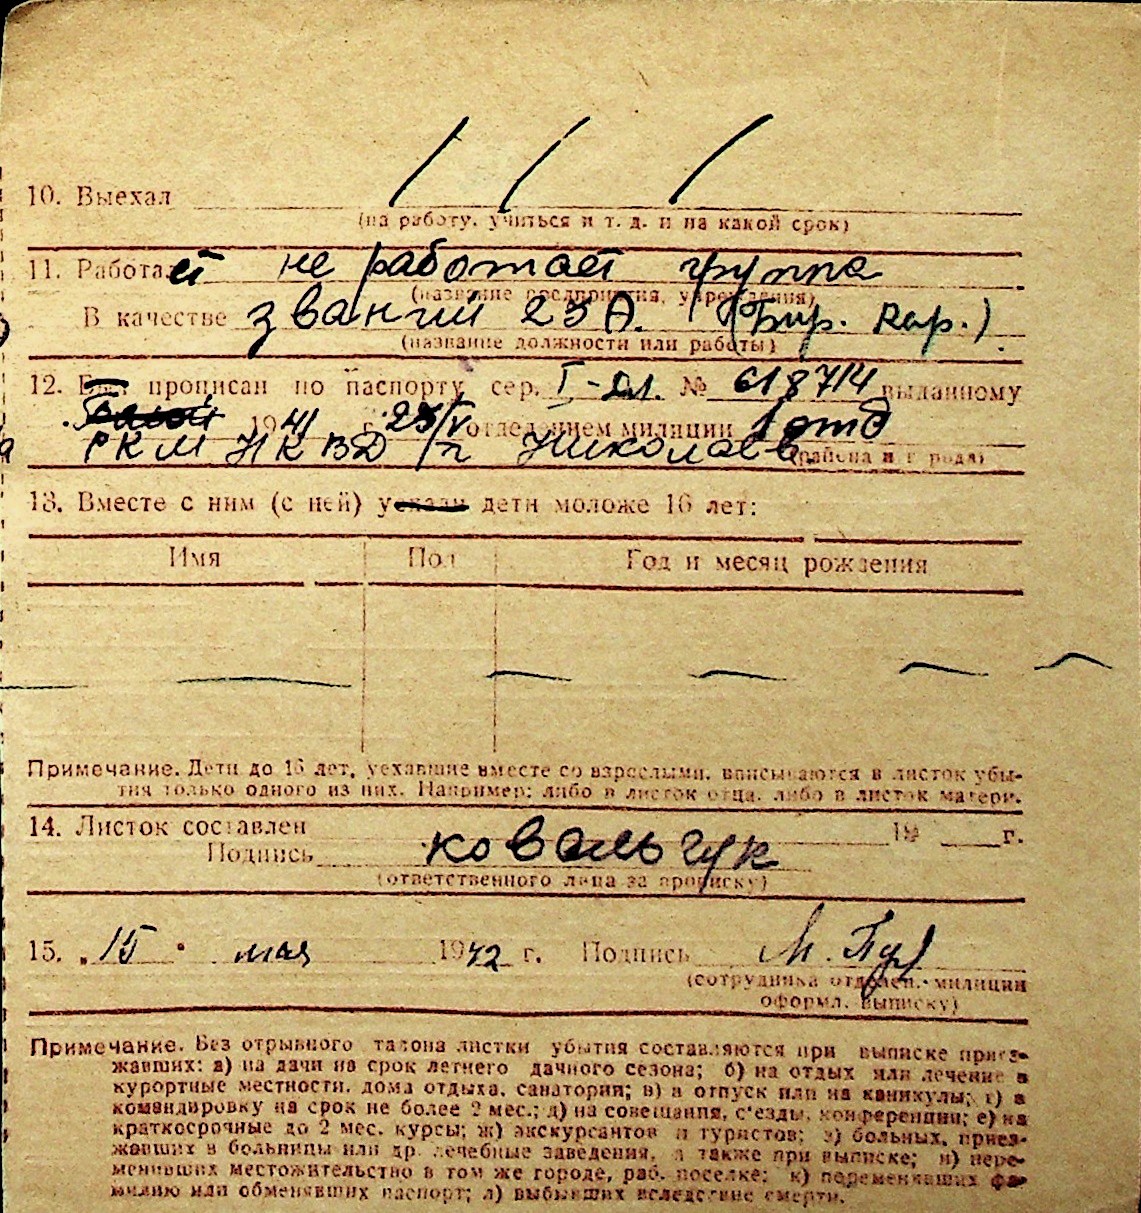 10. Выехал
(на работу, учиться и т. д. и на какой срок)
11. Работает не работает группа
(название предприятия, учреждения)
В качестве званий 23 А. (Бир. Кар.)
(название должности или работы)
12. прописан по паспорту сер. I-ДЛ. № 618714 выданному
1941 г. 23/V отделением милиции 1 отд
РКМ НКВД г. Николаев
(района и города)
13. Вместе с ним (с ней) уехали дети моложе 16 лет:
Имя Пол Год и месяц рождения
Примечание. Дети до 16 лет, уехавшие вместе со взрослыми, вписываются в листок убы-
тия только одного из них. Например: либо в листок отца, либо в листок матери.
14. Листок составлен 19 г.
Подпись Ковальчук
(ответственного лица за прописку)
15. „15" мая 1942 г. Подпись М.
(сотрудника отделен. милиции
оформл. выписку)
Примечание. Без отрывного талона листки убытия составляются при выписке приез-
жавших: а) на дачи на срок летнего дачного сезона; б) на отдых или лечение в
курортные местности, дома отдыха, санатории; в) в отпуск или на каникулы; г) в
командировку на срок не более 2 мес.; д) на совещания, с'езды, конференции; е) на
краткосрочные до 2 мес. курсы; ж) экскурсантов и туристов; з) больных, приез-
жавших в больницы или др. лечебные заведения, а также при выписке; и) пере-
менивших местожительство в том же городе, раб. поселке; к) переменявших фа-
милию или обменявших паспорт; л) выбывших вследствие смерти.